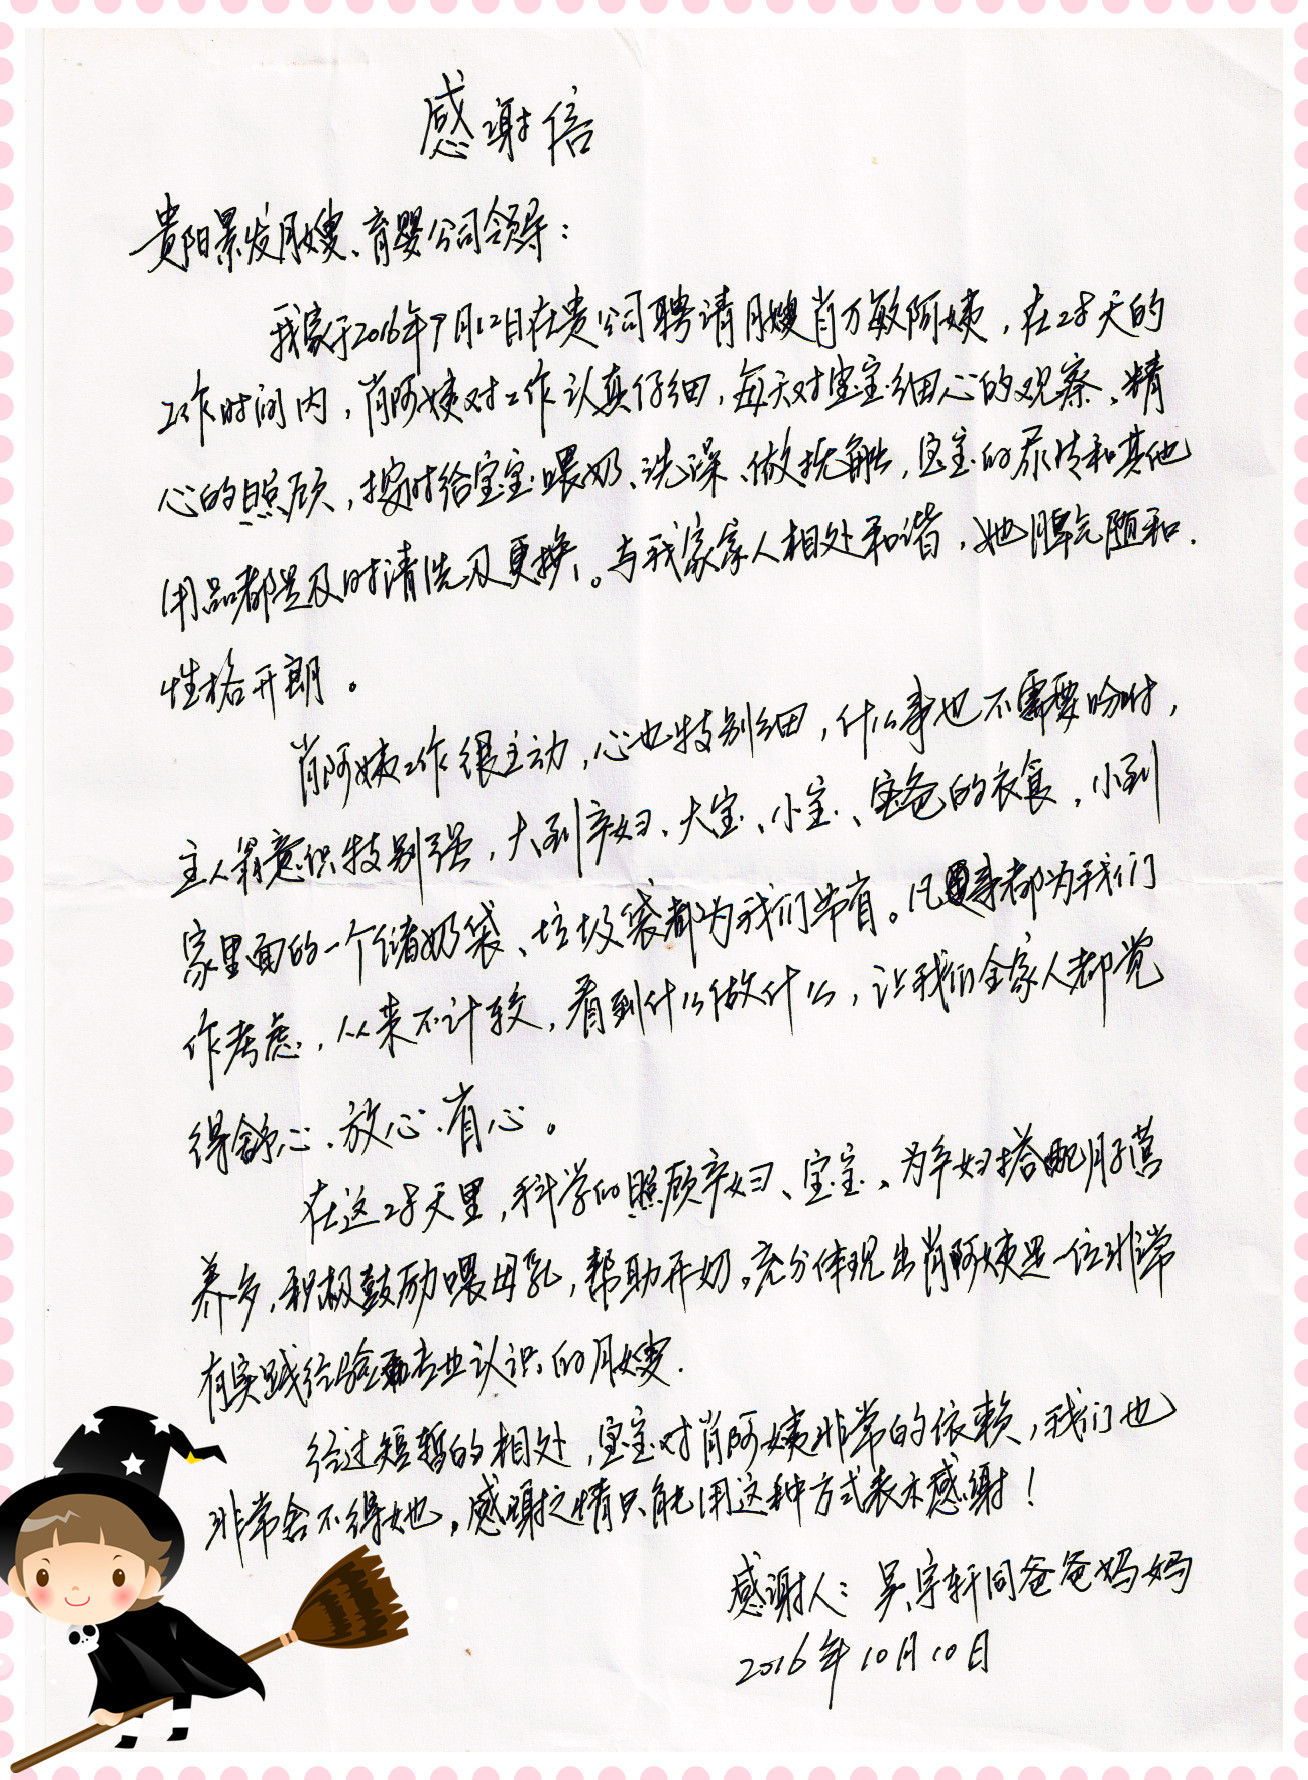 感谢信
贵阳景发月嫂、育婴公司领导：
我家于2016年9月12日在贵公司聘请月嫂肖万敏阿姨，在28天的
工作时间内，肖阿姨对工作认真仔细，每天对宝宝细心的观察、精
心的照顾，按时给宝宝喂奶、洗澡、做抚触，宝宝的尿片和其他
用品都是及时清洗及更换。与我家家人相处和谐，她脾气随和、
性格开朗。
肖阿姨工作很主动，心也特别细，什么事也不需要吩咐，
主人翁意识特别强，大到产妇、大宝、小宝、宝爸的衣食，小到
家里面的一个储奶袋、垃圾袋都为我们节省。凡事都为我们
作考虑，从来不计较，看到什么做什么，让我们全家人都觉
得舒心、放心、省心。
在这28天里，科学的照顾产妇、宝宝、为产妇搭配月子营
养多，积极鼓励喂母乳，帮助开奶。充分体现出肖阿姨是一位非常
有实践经验和专业认识的月嫂.
经过短暂的相处，宝宝对肖阿姨非常的依赖，我们也
非常舍不得她，感谢之情只能用这种方式表示感谢！
感谢人：吴宇轩同爸爸妈妈
2016年10月10日